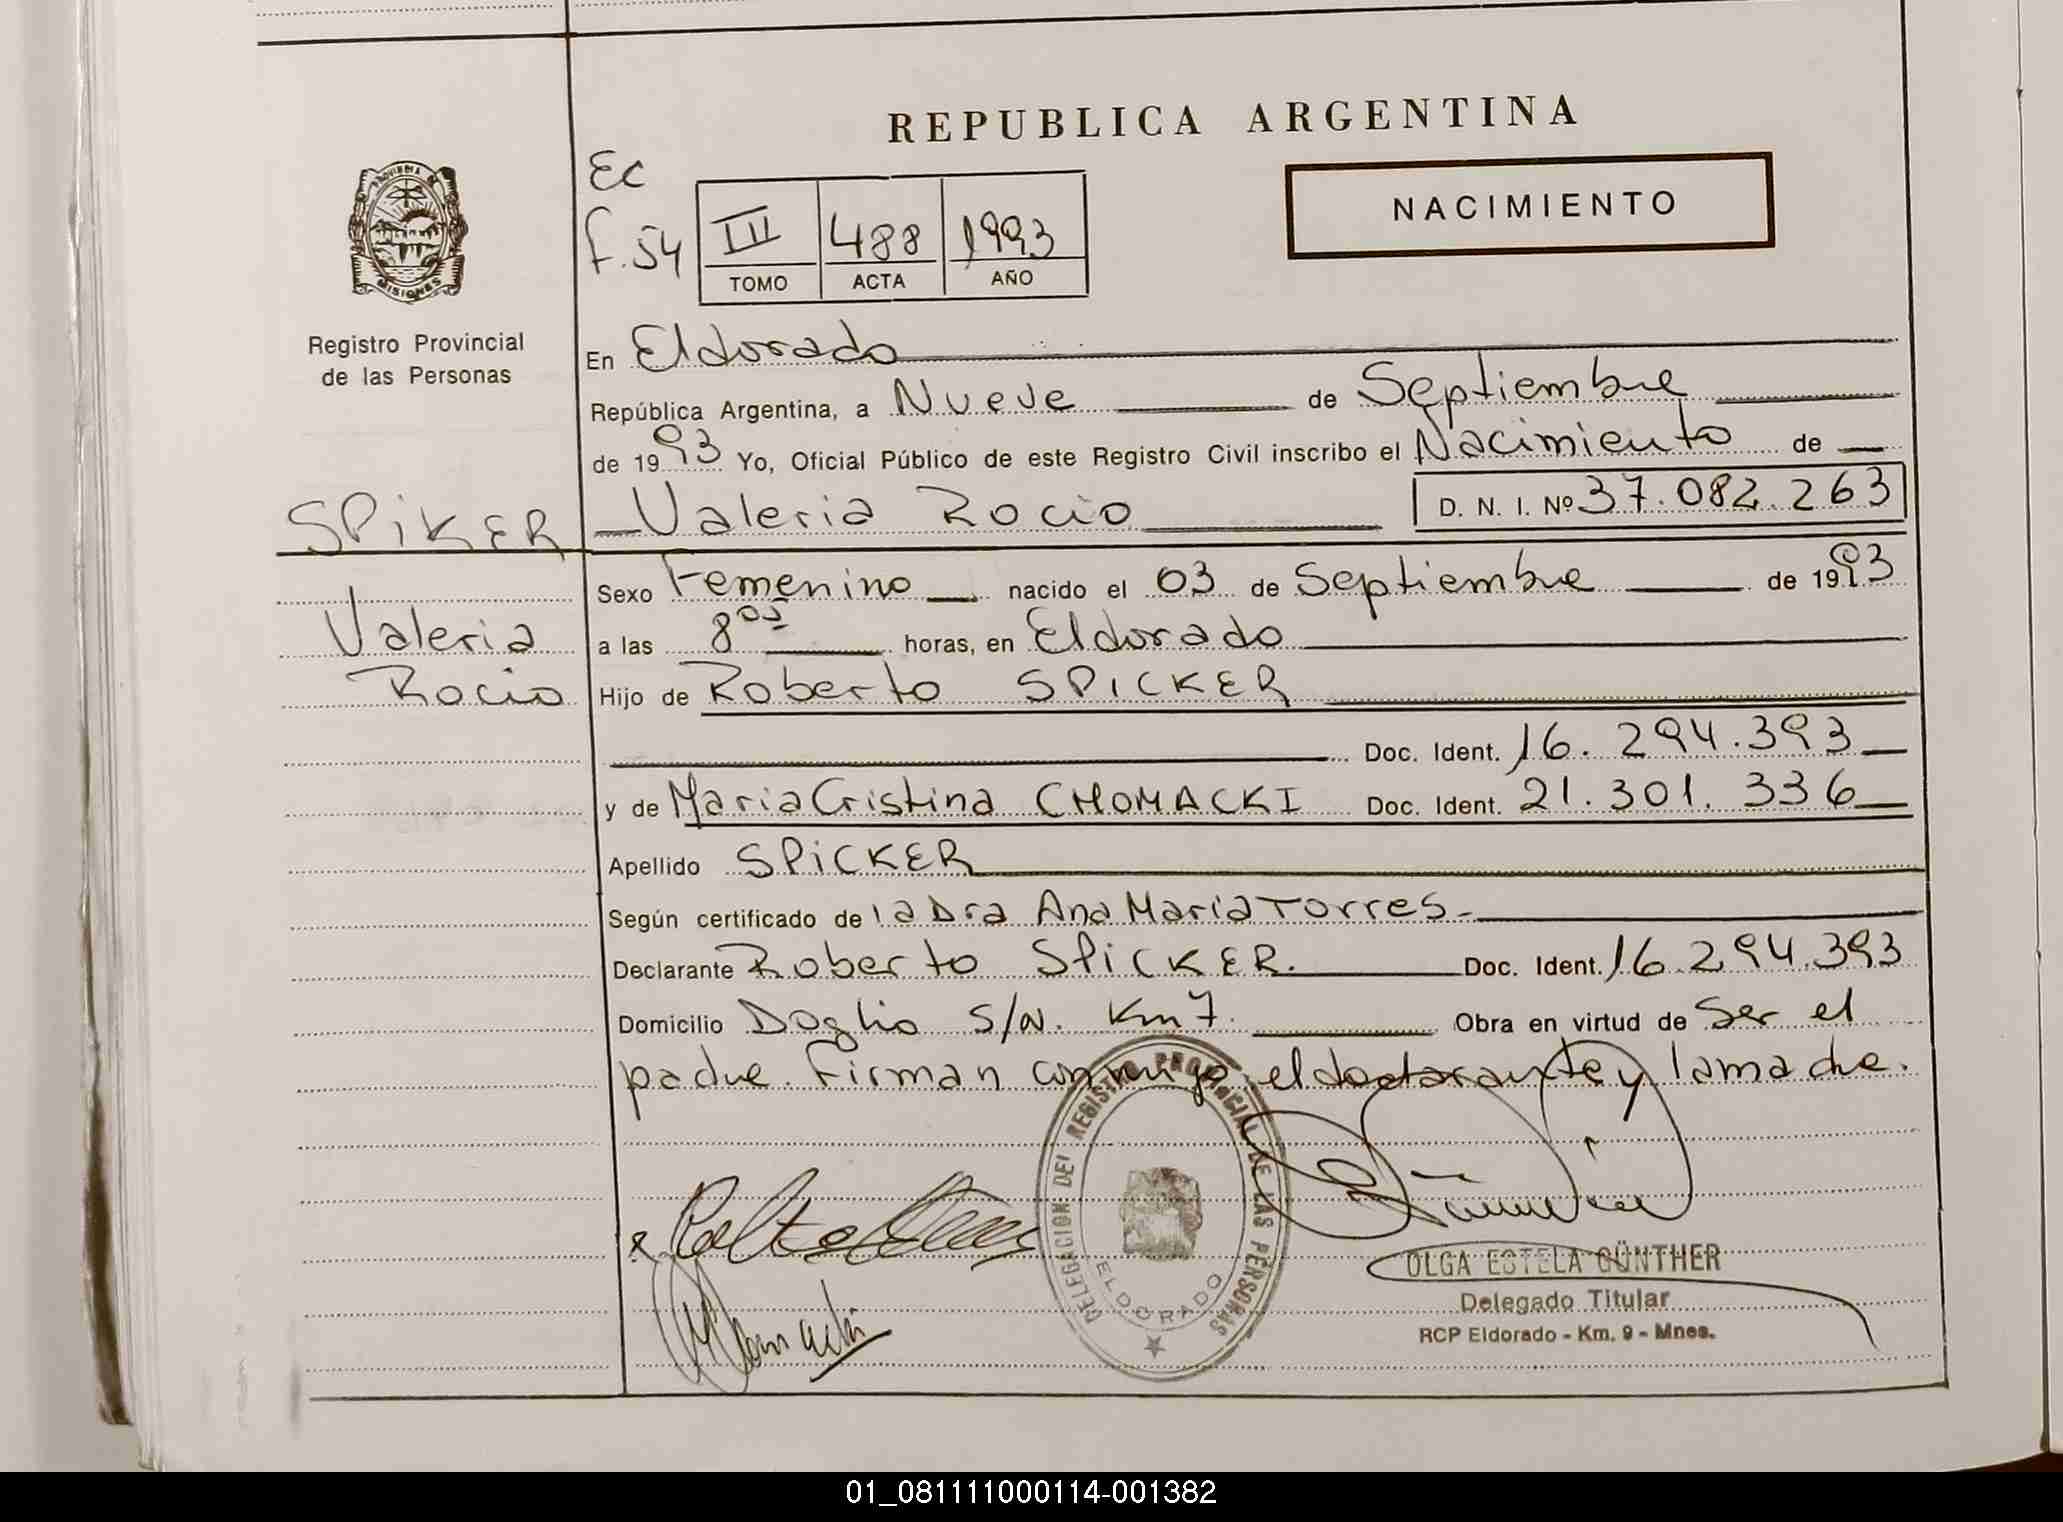 REPUBLICA ARGENTINA
NACIMIENTO
PROVINCIA DE
MISIONES
Registro Provincial
de las Personas
Ec
F. 54
III 488 1993
TOMO ACTA AÑO
En Eldorado
República Argentina, a Nueve de Septiembre
de 1993 Yo, Oficial Público de este Registro Civil inscribo el Nacimiento de
SPiKER
Valeria Rocio D. N. I. Nº 37.082.263
Valeria
Rocio
Sexo Femenino nacido el 03 de Septiembre de 1993
a las 8 horas, en Eldorado
Hijo de Roberto SPICKER
Doc. Ident. 16.294.393
y de Maria Cristina CHOMACKI Doc. Ident. 21.301.336
Apellido SPiCKER
Según certificado de la Dra Ana Maria Torres
Declarante Roberto SPiCKER. Doc. Ident. 16.294.393
Domicilio Doglio S/N. Km 7. Obra en virtud de Ser el
padre. Firman conmigo, el declarante y la madre.
DELEGACION DEL REGISTRO PROVINCIAL DE LAS PERSONAS
ELDORADO
OLGA ESTELA GÜNTHER
Delegado Titular
RCP Eldorado - Km. 9 - Mnes.
01_081111000114-001382